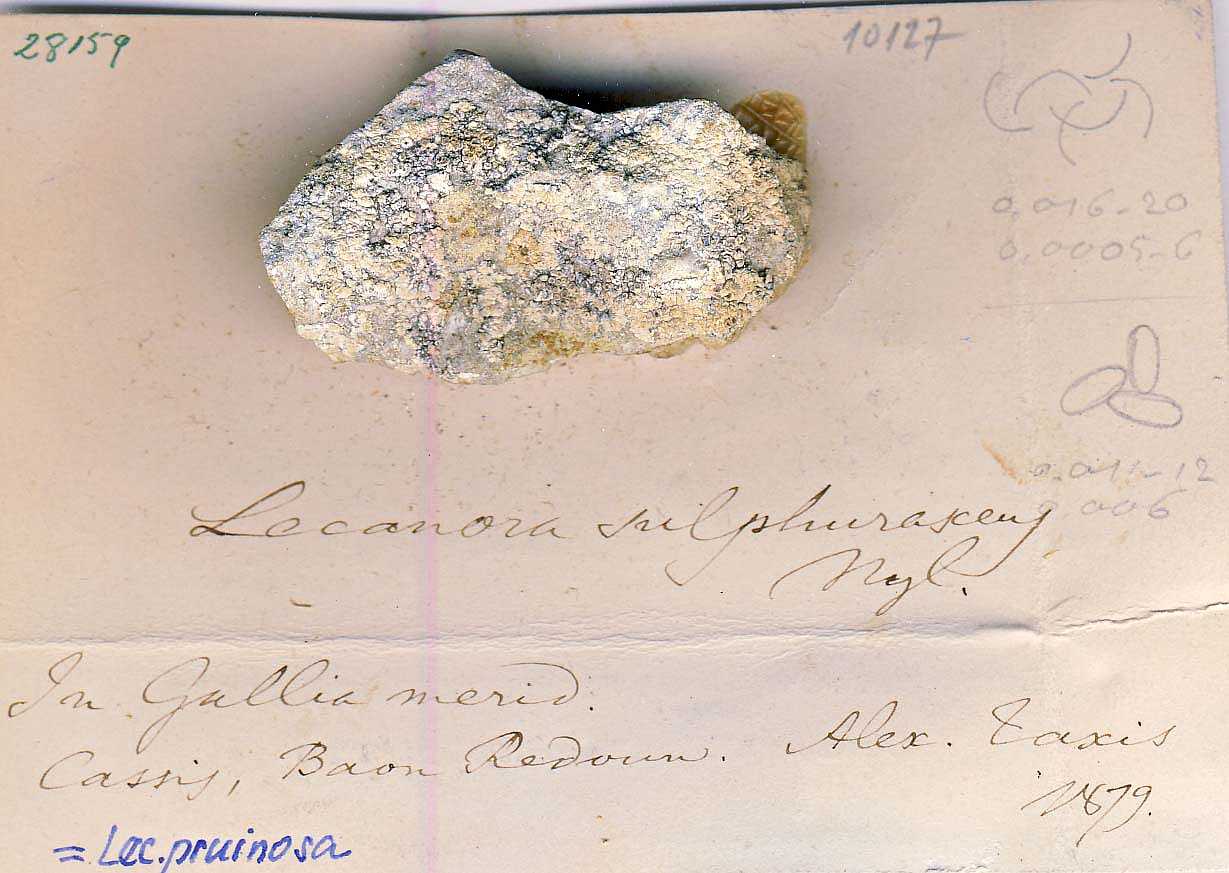 28159
10127
0,016-20
0,0005-6
0,011-12
0,006
Lecanora sulphurascens
Nyl.
In Gallia merid.
Cassis, Baon Redoun. Alex. Taxis
1879.
= Lec. pruinosa